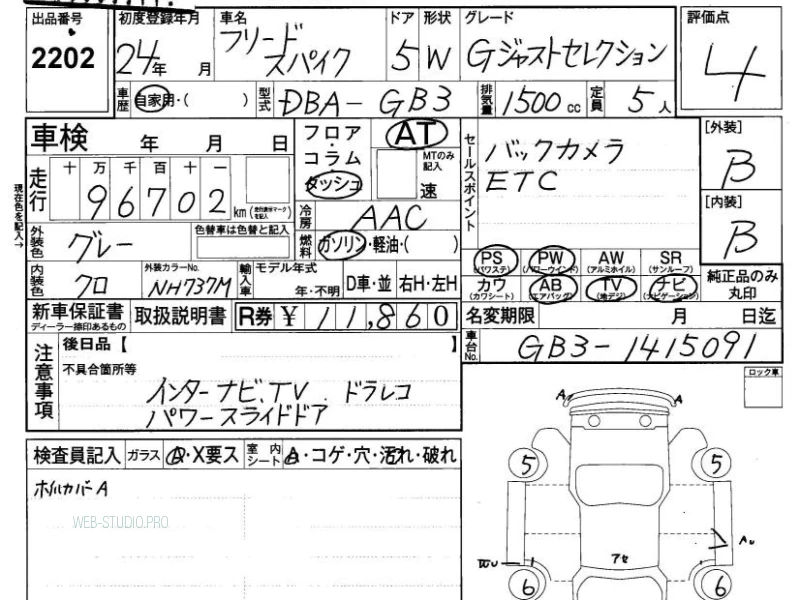 出品番号 初度登録年月 車名 ドア 形状 グレード 評価点
2202 24年 月 フリード スパイク 5 W Gジャストセレクション 4
車歴 自家用・( ) 型式 DBA-GB3 排気量 1500cc 定員 5人
車検 年 月 日 フロア・コラム・ダッシュ AT MTのみ記入 速 セールスポイント バックカメラ [外装] B
ETC
走行 十 万 千 百 十 一
96702 km (走行距離マークを記入) 冷房 AAC [内装] B
現在色を記入→ 外装色 グレー 色替車は色替と記入 燃料 ガソリン・軽油・( )
PS (パワステ) PW (パワーウインド) AW (アルミホイル) SR (サンルーフ) 純正品のみ丸印
内装色 クロ 外装カラーNo. NH737M 輸入車 モデル年式 年・不明 D車・並 右H・左H カワ (カワシート) AB (エアバッグ) TV (地デジ) ナビ (ナビゲーション)
新車保証書 ディーラー捺印あるもの 取扱説明書 R券 ¥ 11,860 名変期限 月 日迄
注意事項 後日品【 】 車台No. GB3-1415091
不具合箇所等 ロック車
インターナビ、TV ドラレコ
パワースライドドア
検査員記入 ガラス A・X要ス 室内シート A・コゲ・穴・汚れ・破れ
ホイルカバーA
WEB-STUDIO.PRO
A A
5 5
アセ
6 6